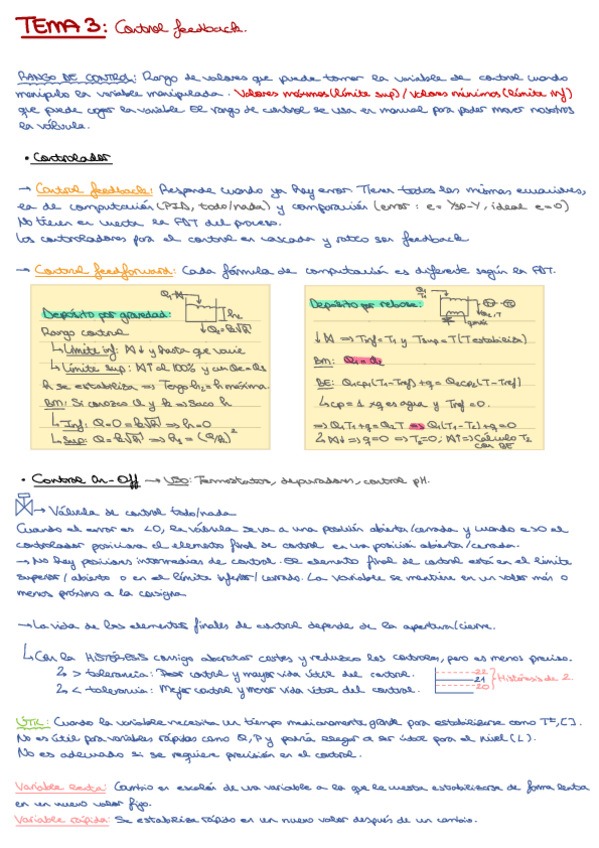 TEMA 3: Control feedback.
RANGO DE CONTROL: Rango de valores que puede tomar la variable de control cuando
manipulo la variable manipulada. Valores máximos (límite sup) / Valores mínimos (límite inf)
que puede coger la variable. El rango de control se usa en manual para poder mover nosotros
la válvula.
• Controlador
→ Control feedback: Responde cuando ya hay error. Tienen todos las mismas ecuaciones,
la de computación (PID, todo/nada) y comparación (error: e = Ysp-Y, ideal e=0)
No tienen en cuenta la FDT del proceso.
Los controladores para el control en cascada y ratio son feedback
→ Control feedforward: Cada fórmula de computación es diferente según la FDT.
Depósito por gravedad:
Rango control
↳ Límite inf: A↓ y hasta que varíe
↳ Límite sup: A↑ al 100% y con Qe=Qs
h se estabiliza ⇒ Tengo h2 = h máxima.
BM: Si conozco Q y k ⇒ Saco h
↳ Inf: Q=0=k√h ⇒ h=0
↳ Sup: Q=k√h ⇒ h2 = (Q/k)²
Depósito por rebose:
BM: Q1 = Q2
BE: Q1cp1(T1-Tref)+q = Q2cp2(T-Tref)
↳ cp=1 xq es agua y Tref=0.
⇒ Q1T1+q=Q2T ⇒ Q1(T1-T2)+q=0
con BE
• Control On-Off → USO: Termostatos, depuradoras, control pH.
→ Válvula de control todo/nada
Cuando el error es <0, la válvula se va a una posición abierta/cerrada y cuando e>0 el
controlador posiciona el elemento final de control en una posición abierta/cerrada.
→ No hay posiciones intermedias de control. El elemento final de control está en el límite
superior/abierto o en el límite inferior/cerrado. La variable se mantiene en un valor más o
menos próximo a la consigna
→ La vida de los elementos finales de control depende de la apertura/cierre.
↳ Con la HISTÉRESIS consigo abaratar costes y reduzco los controles, pero es menos preciso.
> tolerancia: Peor control y mayor vida útil del control.
< tolerancia: Mejor control y menor vida útil del control.
22
21
20
Histéresis de 2.
ÚTIL: Cuando la variable necesita un tiempo medianamente grande para estabilizarse como Tª, [].
No es útil para variables rápidas como Q, P y podría llegar a ser útil para el nivel (L).
No es adecuado si se requiere precisión en el control.
Variable lenta: Cambio en escalón de una variable a la que le cuesta estabilizarse de forma lenta
en un nuevo valor fijo.
Variable rápida: Se estabiliza rápido en un nuevo valor después de un cambio.